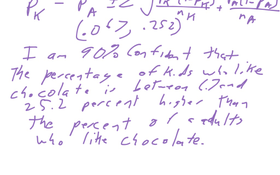 p̂K - p̂A ± z √ p̂K(1-p̂K)/nK + p̂A(1-p̂A)/nA
(.067, .252)
I am 90% confident that
the percentage of kids who like
chocolate is between 6.7 and
25.2 percent higher than
the percent of adults
who like chocolate.